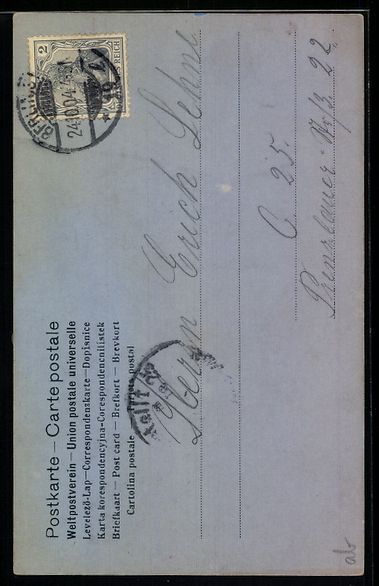 Postkarte – Cartepostale
Weltpostverein – Union postale universelle
Levelező-Lap – Correspondenzkarte – Dopisnice
Karta korespondencyjna – Corespondencnilistek
Briefkaart – Post card – Brefkort – Brevkort
Cartolina postale postal
2
REICH
BERLIN
24.10.04
Herrn Erich Lehne
C 25.
Prenzlauer-Str. 22